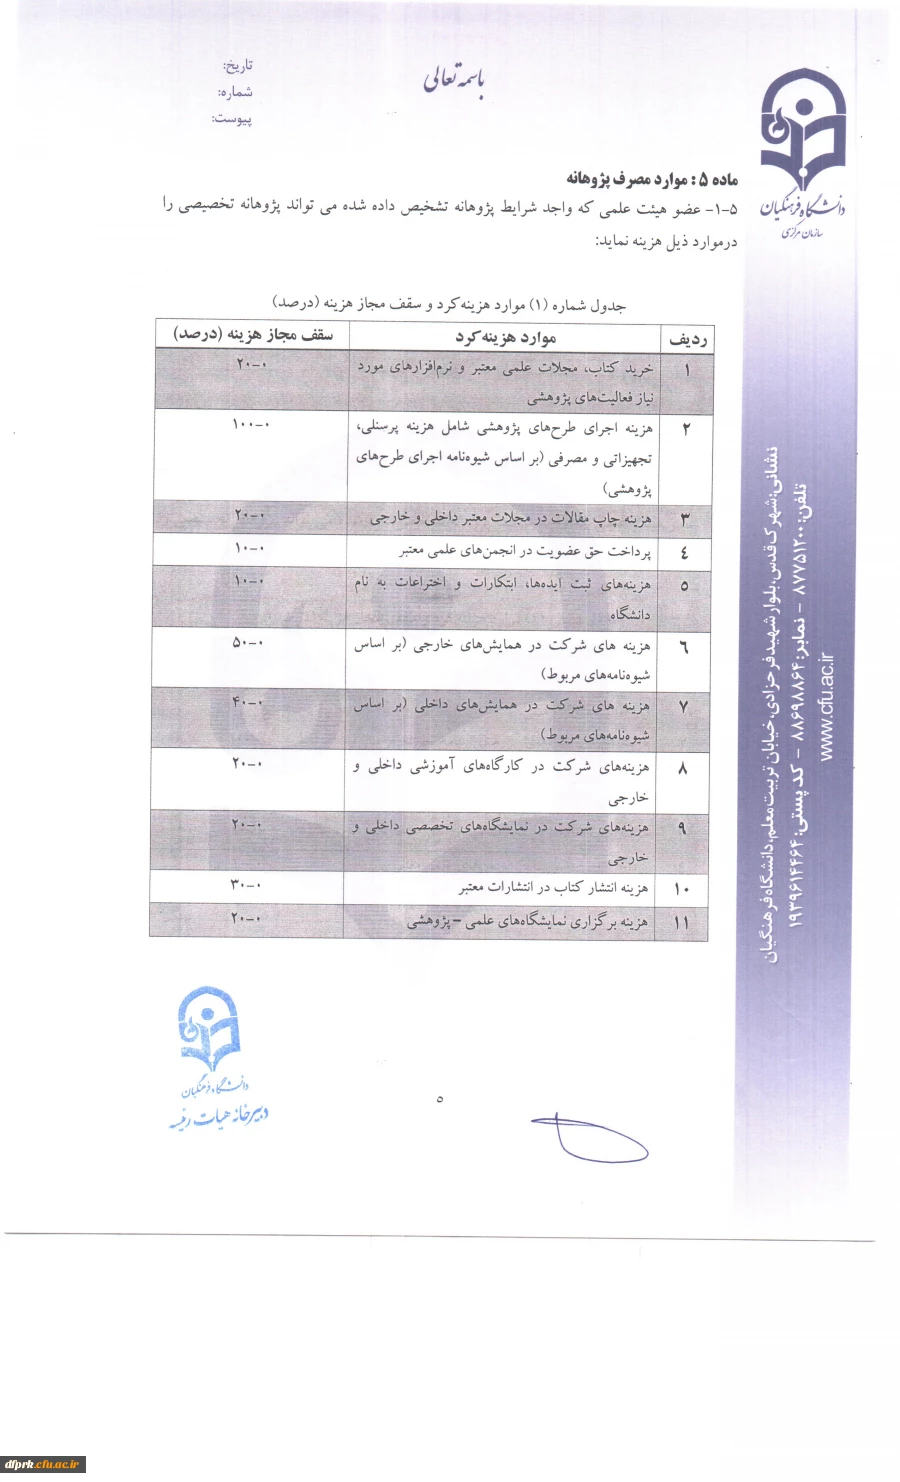 باسمه تعالی
تاریخ:
شماره:
پیوست:
دانشگاه فرهنگیان
سازمان مرکزی
ماده ۵ : موارد مصرف پژوهانه
۵-۱- عضو هیئت علمی که واجد شرایط پژوهانه تشخیص داده شده می تواند پژوهانه تخصیصی را
درموارد ذیل هزینه نماید:
جدول شماره (۱) موارد هزینه‌کرد و سقف مجاز هزینه (درصد)
ردیف موارد هزینه‌کرد سقف مجاز هزینه (درصد)
۱ خرید کتاب، مجلات علمی معتبر و نرم‌افزارهای مورد ۰-۲۰
نیاز فعالیت‌های پژوهشی
۲ هزینه اجرای طرح‌های پژوهشی شامل هزینه پرسنلی، ۰-۱۰۰
تجهیزاتی و مصرفی (بر اساس شیوه‌نامه اجرای طرح‌های
پژوهشی)
۳ هزینه چاپ مقالات در مجلات معتبر داخلی و خارجی ۰-۲۰
٤ پرداخت حق عضویت در انجمن‌های علمی معتبر ۰-۱۰
۵ هزینه‌های ثبت ایده‌ها، ابتکارات و اختراعات به نام ۰-۱۰
دانشگاه
٦ هزینه های شرکت در همایش‌های خارجی (بر اساس ۰-۵۰
شیوه‌نامه‌های مربوط)
۷ هزینه های شرکت در همایش‌های داخلی (بر اساس ۰-۴۰
شیوه‌نامه‌های مربوط)
۸ هزینه‌های شرکت در کارگاه‌های آموزشی داخلی و ۰-۲۰
خارجی
۹ هزینه‌های شرکت در نمایشگاه‌های تخصصی داخلی و ۰-۲۰
خارجی
۱۰ هزینه انتشار کتاب در انتشارات معتبر ۰-۳۰
۱۱ هزینه برگزاری نمایشگاه‌های علمی – پژوهشی ۰-۲۰
نشانی: شهرک قدس، بلوار شهید فرحزادی، خیابان تربیت معلم، دانشگاه فرهنگیان
تلفن: ۸۷۷۵۱۲۰۰ – نمابر: ۸۸۶۹۸۸۶۴ – کد پستی: ۱۹۳۹۶۱۴۴۶۴
www.cfu.ac.ir
دانشگاه فرهنگیان
دبیرخانه هیات رئیسه
۵
dfprk.cfu.ac.ir